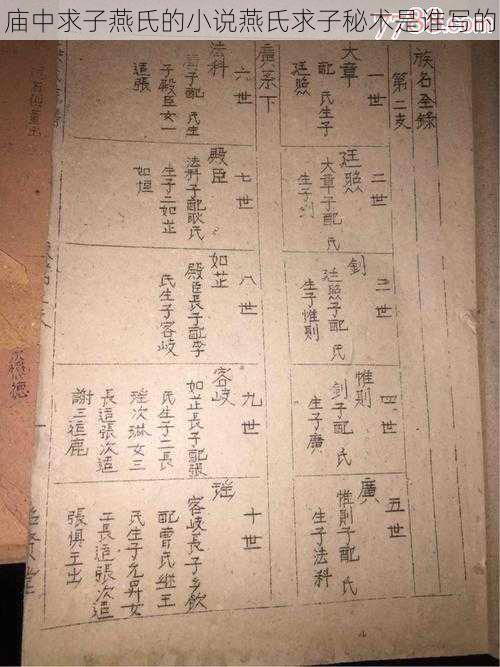 庙中求子燕氏的小说燕氏求子秘术是谁写的
族名全錄
第二支
一世
大章
配 氏生子
廷照
二世
廷照
大章子配 氏
生子釗
三世
釗
廷照子配 氏
生子惟則
四世
惟則
釗子配 氏
生子廣
五世
廣
惟則子配 氏
生子法科
廣系下
六世
法科
子配 氏生
子殿臣女一
適張
七世
殿臣
法科子配耿氏
生子二如芷
如恒
八世
如芷
殿臣長子配李
氏生子容岐
九世
容岐
如芷長子配張
氏生子二長
琟次琳女三
長適張次適
謝三適鹿
十世
琟
容岐長子鄉飲
配曹氏继王
氏生子允昇女
二長適張次適
張俱王出